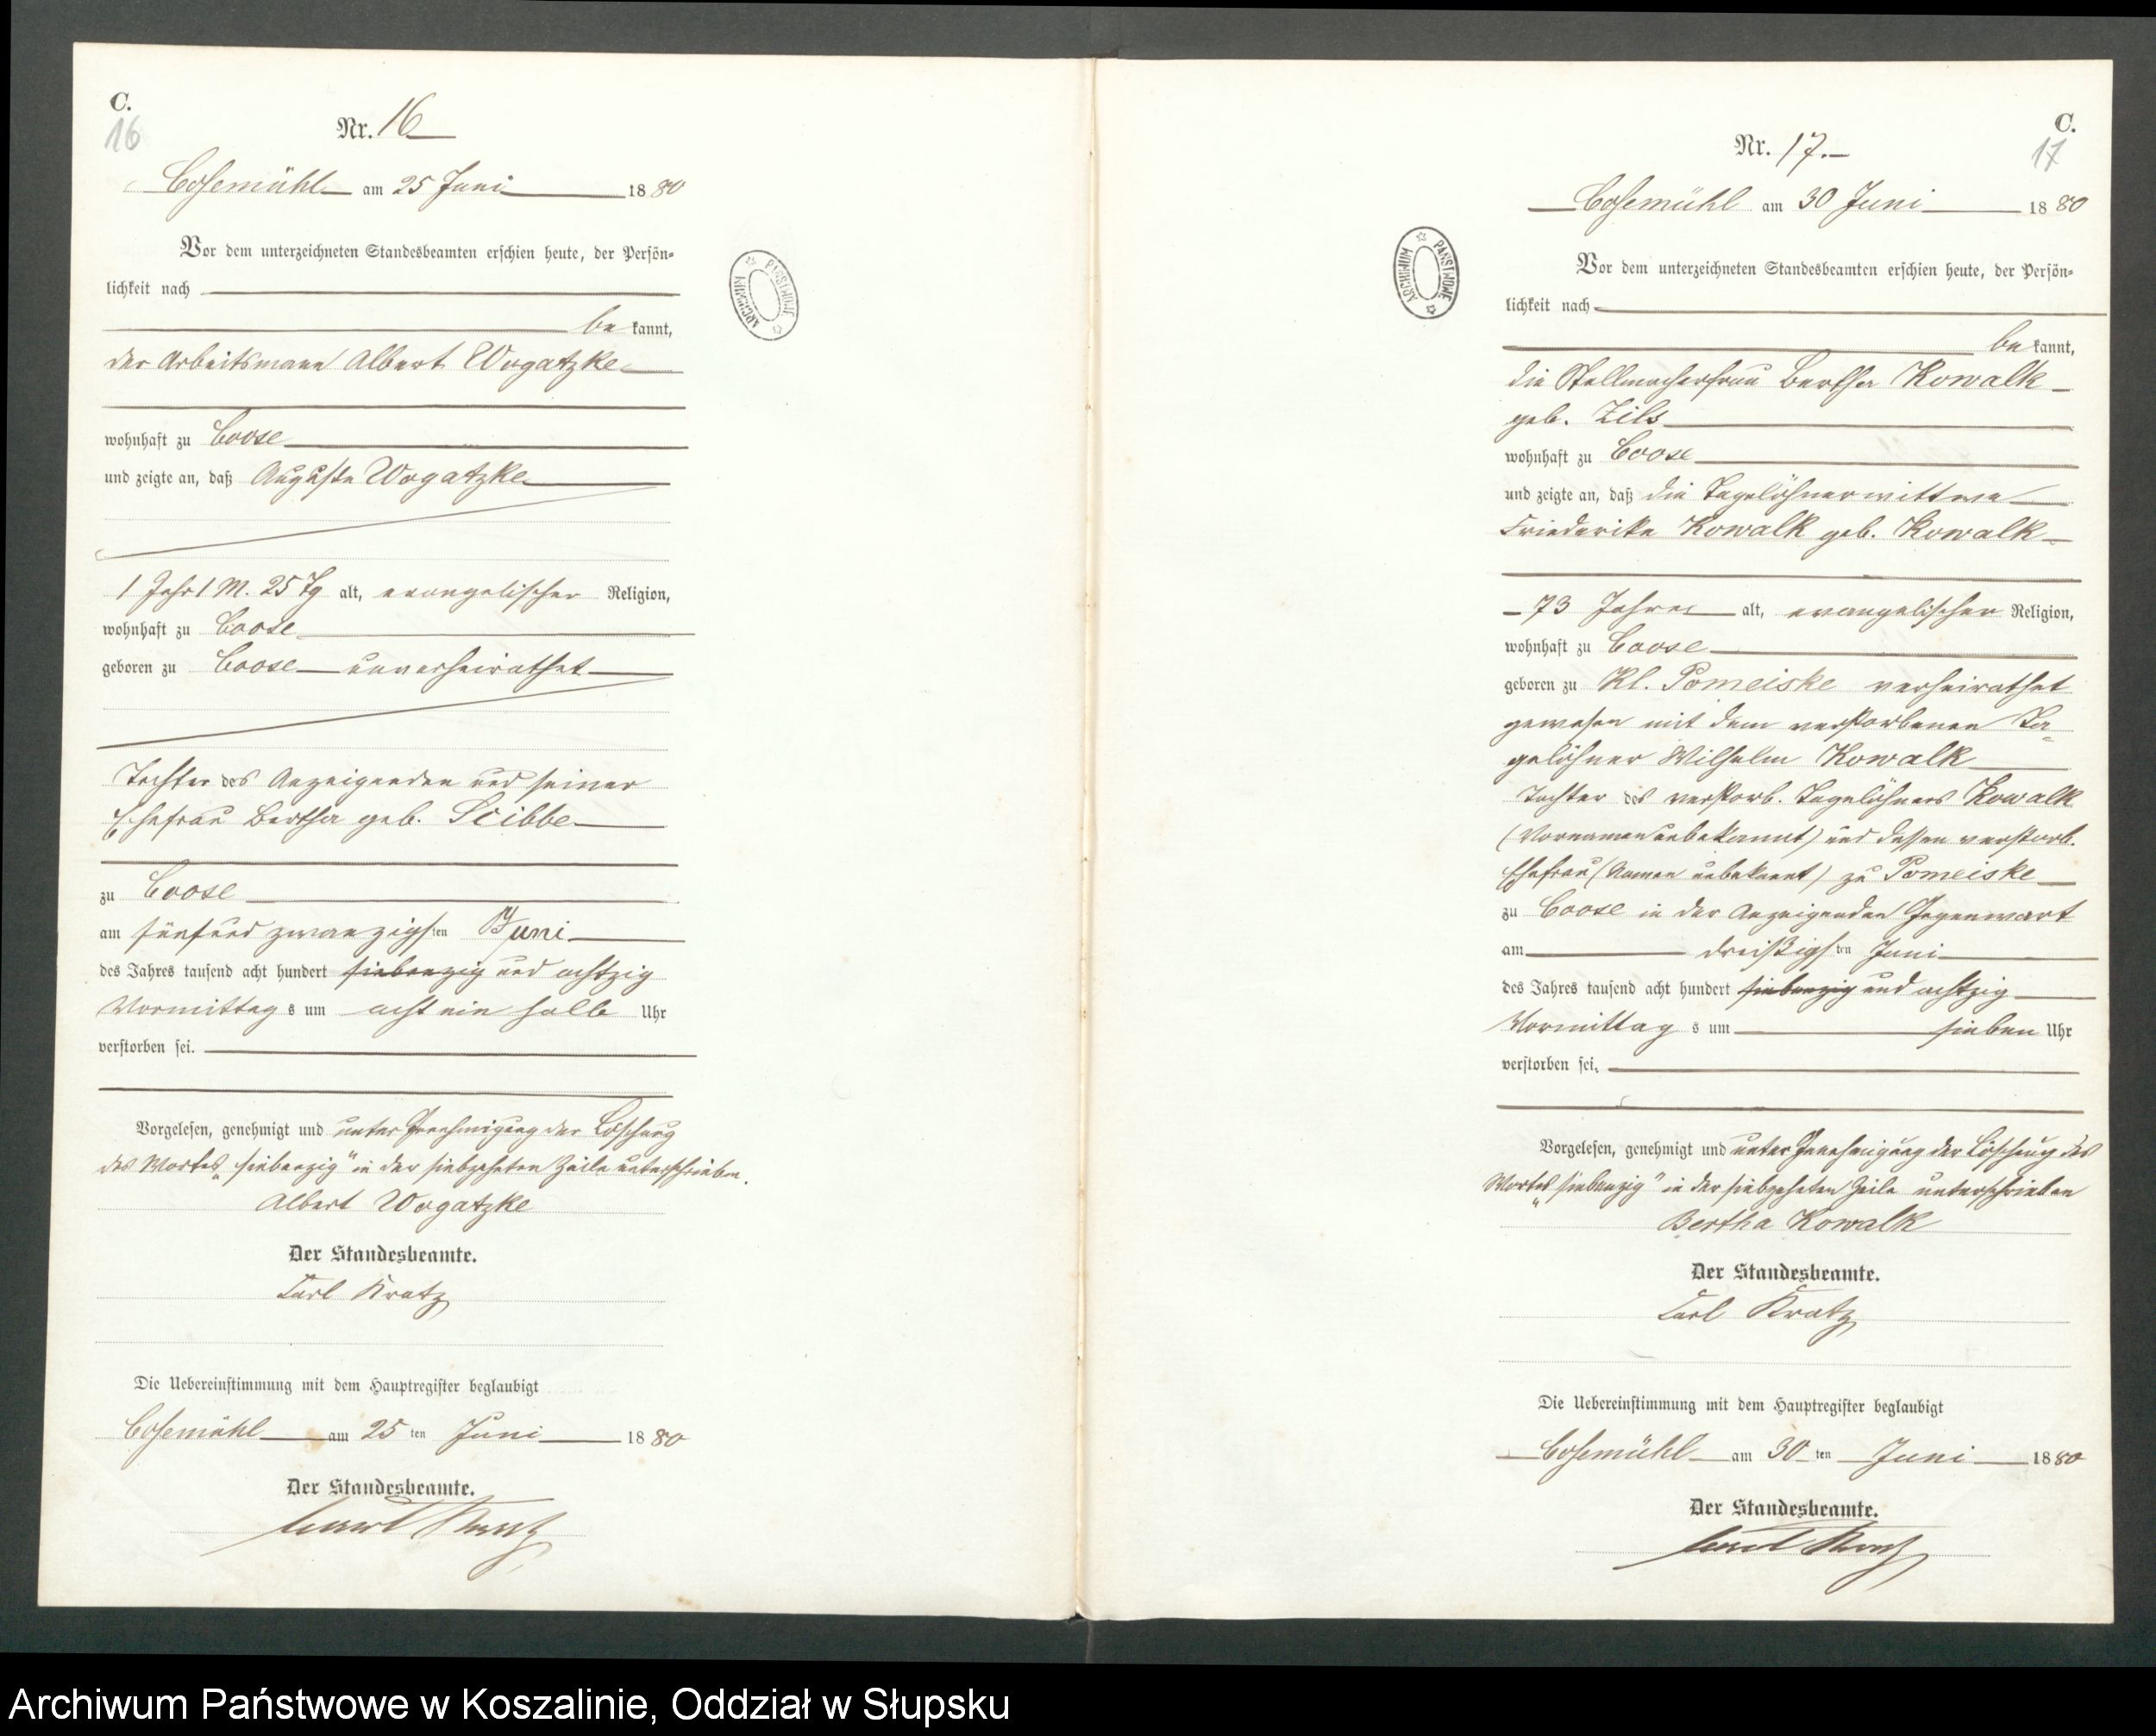 C.
16
Nr. 16
Cosemühl am 25 Juni 1880
Vor dem unterzeichneten Standesbeamten erschien heute, der Persön-
lichkeit nach
be kannt,
der Arbeitsmann Albert Wogatzke
wohnhaft zu Coose
und zeigte an, daß Auguste Wogatzke
1 Jahr 1 M. 25 Tg alt, evangelischer Religion,
wohnhaft zu Coose
geboren zu Coose unverheirathet
Tochter des Anzeigenden und seiner
Ehefrau Bertha geb. Scibbe
zu Coose
am fünfund zwanzigsten Juni
des Jahres tausend acht hundert siebenzig und achtzig
Vormittag s um acht ein halb Uhr
verstorben sei.
Vorgelesen, genehmigt und unter Genehmigung der Löschung
des Wortes „siebenzig" in der siebzehnten Zeile unterschrieben.
Albert Wogatzke
Der Standesbeamte.
Carl Kratz
Die Uebereinstimmung mit dem Hauptregister beglaubigt
Cosemühl am 25 ten Juni 1880
Der Standesbeamte.
Carl Kratz
ARCHIWUM PAŃSTWOWE
C.
17
Nr. 17.
Cosemühl am 30 Juni 1880
Vor dem unterzeichneten Standesbeamten erschien heute, der Persön-
lichkeit nach
be kannt,
die Stellmacherfrau Bertha Kowalk
geb. Zils
wohnhaft zu Coose
und zeigte an, daß die Tagelöhnerwittwe
Friederike Kowalk geb. Kowalk
73 Jahre alt, evangelischer Religion,
wohnhaft zu Coose
geboren zu Kl. Pomeiske verheirathet
gewesen mit dem verstorbenen Ta=
gelöhner Wilhelm Kowalk
Tochter des verstorb. Tagelöhners Kowalk
(Vornamen unbekannt) und dessen verstorb.
Ehefrau (Namen unbekannt) zu Pomeiske
zu Coose in der Anzeigenden Gegenwart
am dreißigsten Juni
des Jahres tausend acht hundert siebenzig und achtzig
Vormittag s um sieben Uhr
verstorben sei.
Vorgelesen, genehmigt und unter Genehmigung der Löschung des
Wortes „siebenzig" in der siebzehnten Zeile unterschrieben
Bertha Kowalk
Der Standesbeamte.
Carl Kratz
Die Uebereinstimmung mit dem Hauptregister beglaubigt
Cosemühl am 30 ten Juni 1880
Der Standesbeamte.
Carl Kratz
ARCHIWUM PAŃSTWOWE
Archiwum Państwowe w Koszalinie, Oddział w Słupsku